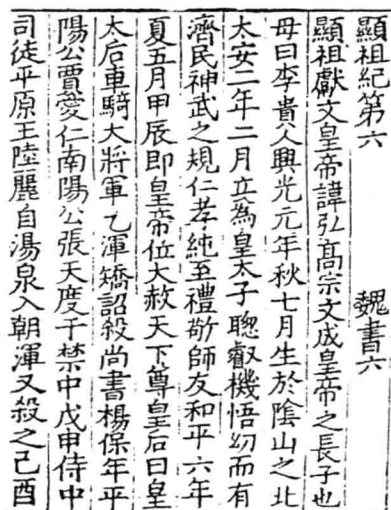 顯祖紀第六 魏書六
顯祖獻文皇帝諱弘髙宗文成皇帝之長子也
母曰李貴人興光元年秋七月生於陰山之北
太安二年二月立為皇太子聰叡機悟幼而有
濟民神武之規仁孝純至禮敬師友和平六年
夏五月甲辰即皇帝位大赦天下尊皇后曰皇
太后車騎大將軍乙渾矯詔殺尚書楊保年平
陽公賈愛仁南陽公張天度于禁中戊申侍中
司徒平原王陸麗自湯泉入朝渾又殺之己酉